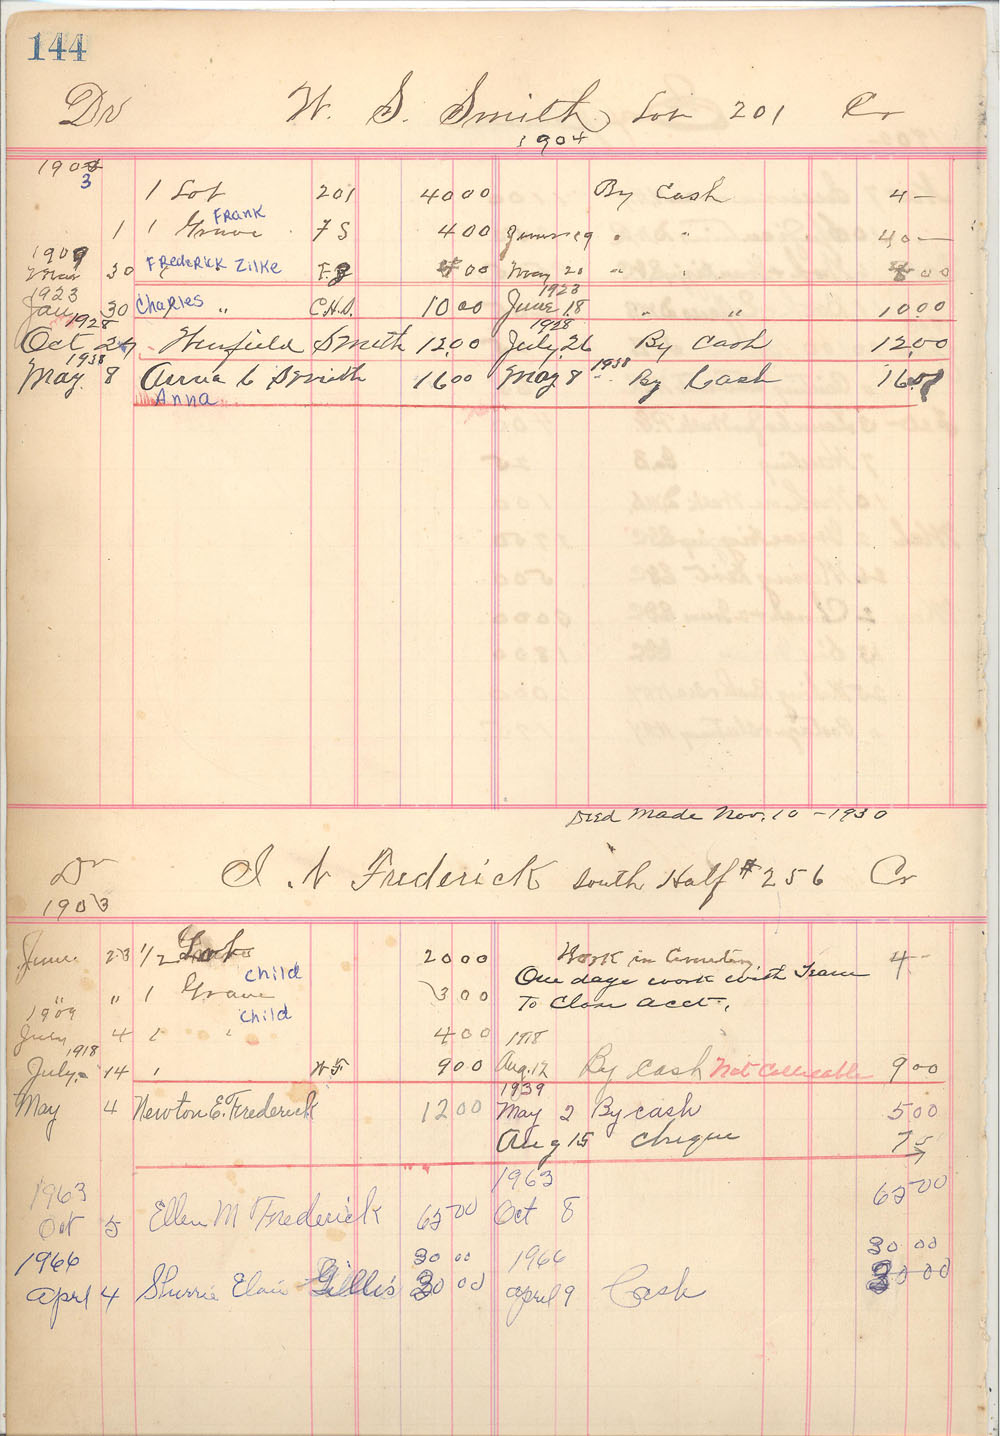 144
Dr W. S. Smith Lot 201 Cr
1904
190
3
1 Lot 201 4000 By Cash 4-
Frank
1 1 Grave F S 400 " " 40-
1909
Mar 30 Frederick Zilke F.Z 00 May 20 " " 00
1923 1923
Jan 30 Charles " C.H.S. 1000 June 18 " " 1000
1928 1928
Oct 29 Winfield Smith 1200 July 26 By Cash 1200
1938 1938
May 8 Anna C Smith 1600 May 8 By Cash 1600
Anna
Deed Made Nov. 10-1930
Dr I. N Frederick South Half #256 Cr
1903
June 23 1/2 Lot 2000 Work in Cemetery 4-
Child One days work with Team
" " 1 Grave 300 To Close acct.
1909 Child
July 4 " 400 1918
1918
July 14 " 900 Aug. 12 By Cash Not Collectable 900
1939
May 4 Newton E. Frederick 1200 May 2 By cash 500
Aug 15 cheque 75
1963 1963
Oct 5 Ellen M Frederick 6500 Oct 8 6500
30 00 30 00
1966 1966
April 4 Sherrie Elaine Gillis 30 00 April 9 Cash 30 00